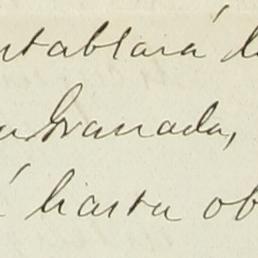 ntablará l
u Granada,
á hasta ob